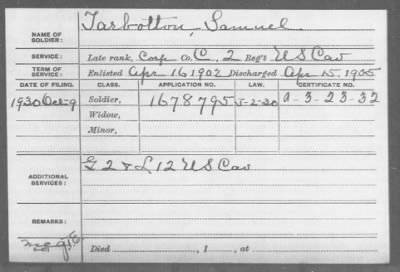 NAME OF SOLDIER: Tarbotton, Samuel
SERVICE: Late rank, Corp Co. C, 2 Reg't US Cav
TERM OF SERVICE: Enlisted Apr 16 1902 Discharged Apr 15, 1905
DATE OF FILING. CLASS. APPLICATION NO. LAW. CERTIFICATE NO.
1930 Oct-9 Soldier, 1678795 5-2-20 a-3-23-32
Widow,
Minor,
ADDITIONAL SERVICES: G 2 & L 12 US Cav
REMARKS:
Died , 1 , at